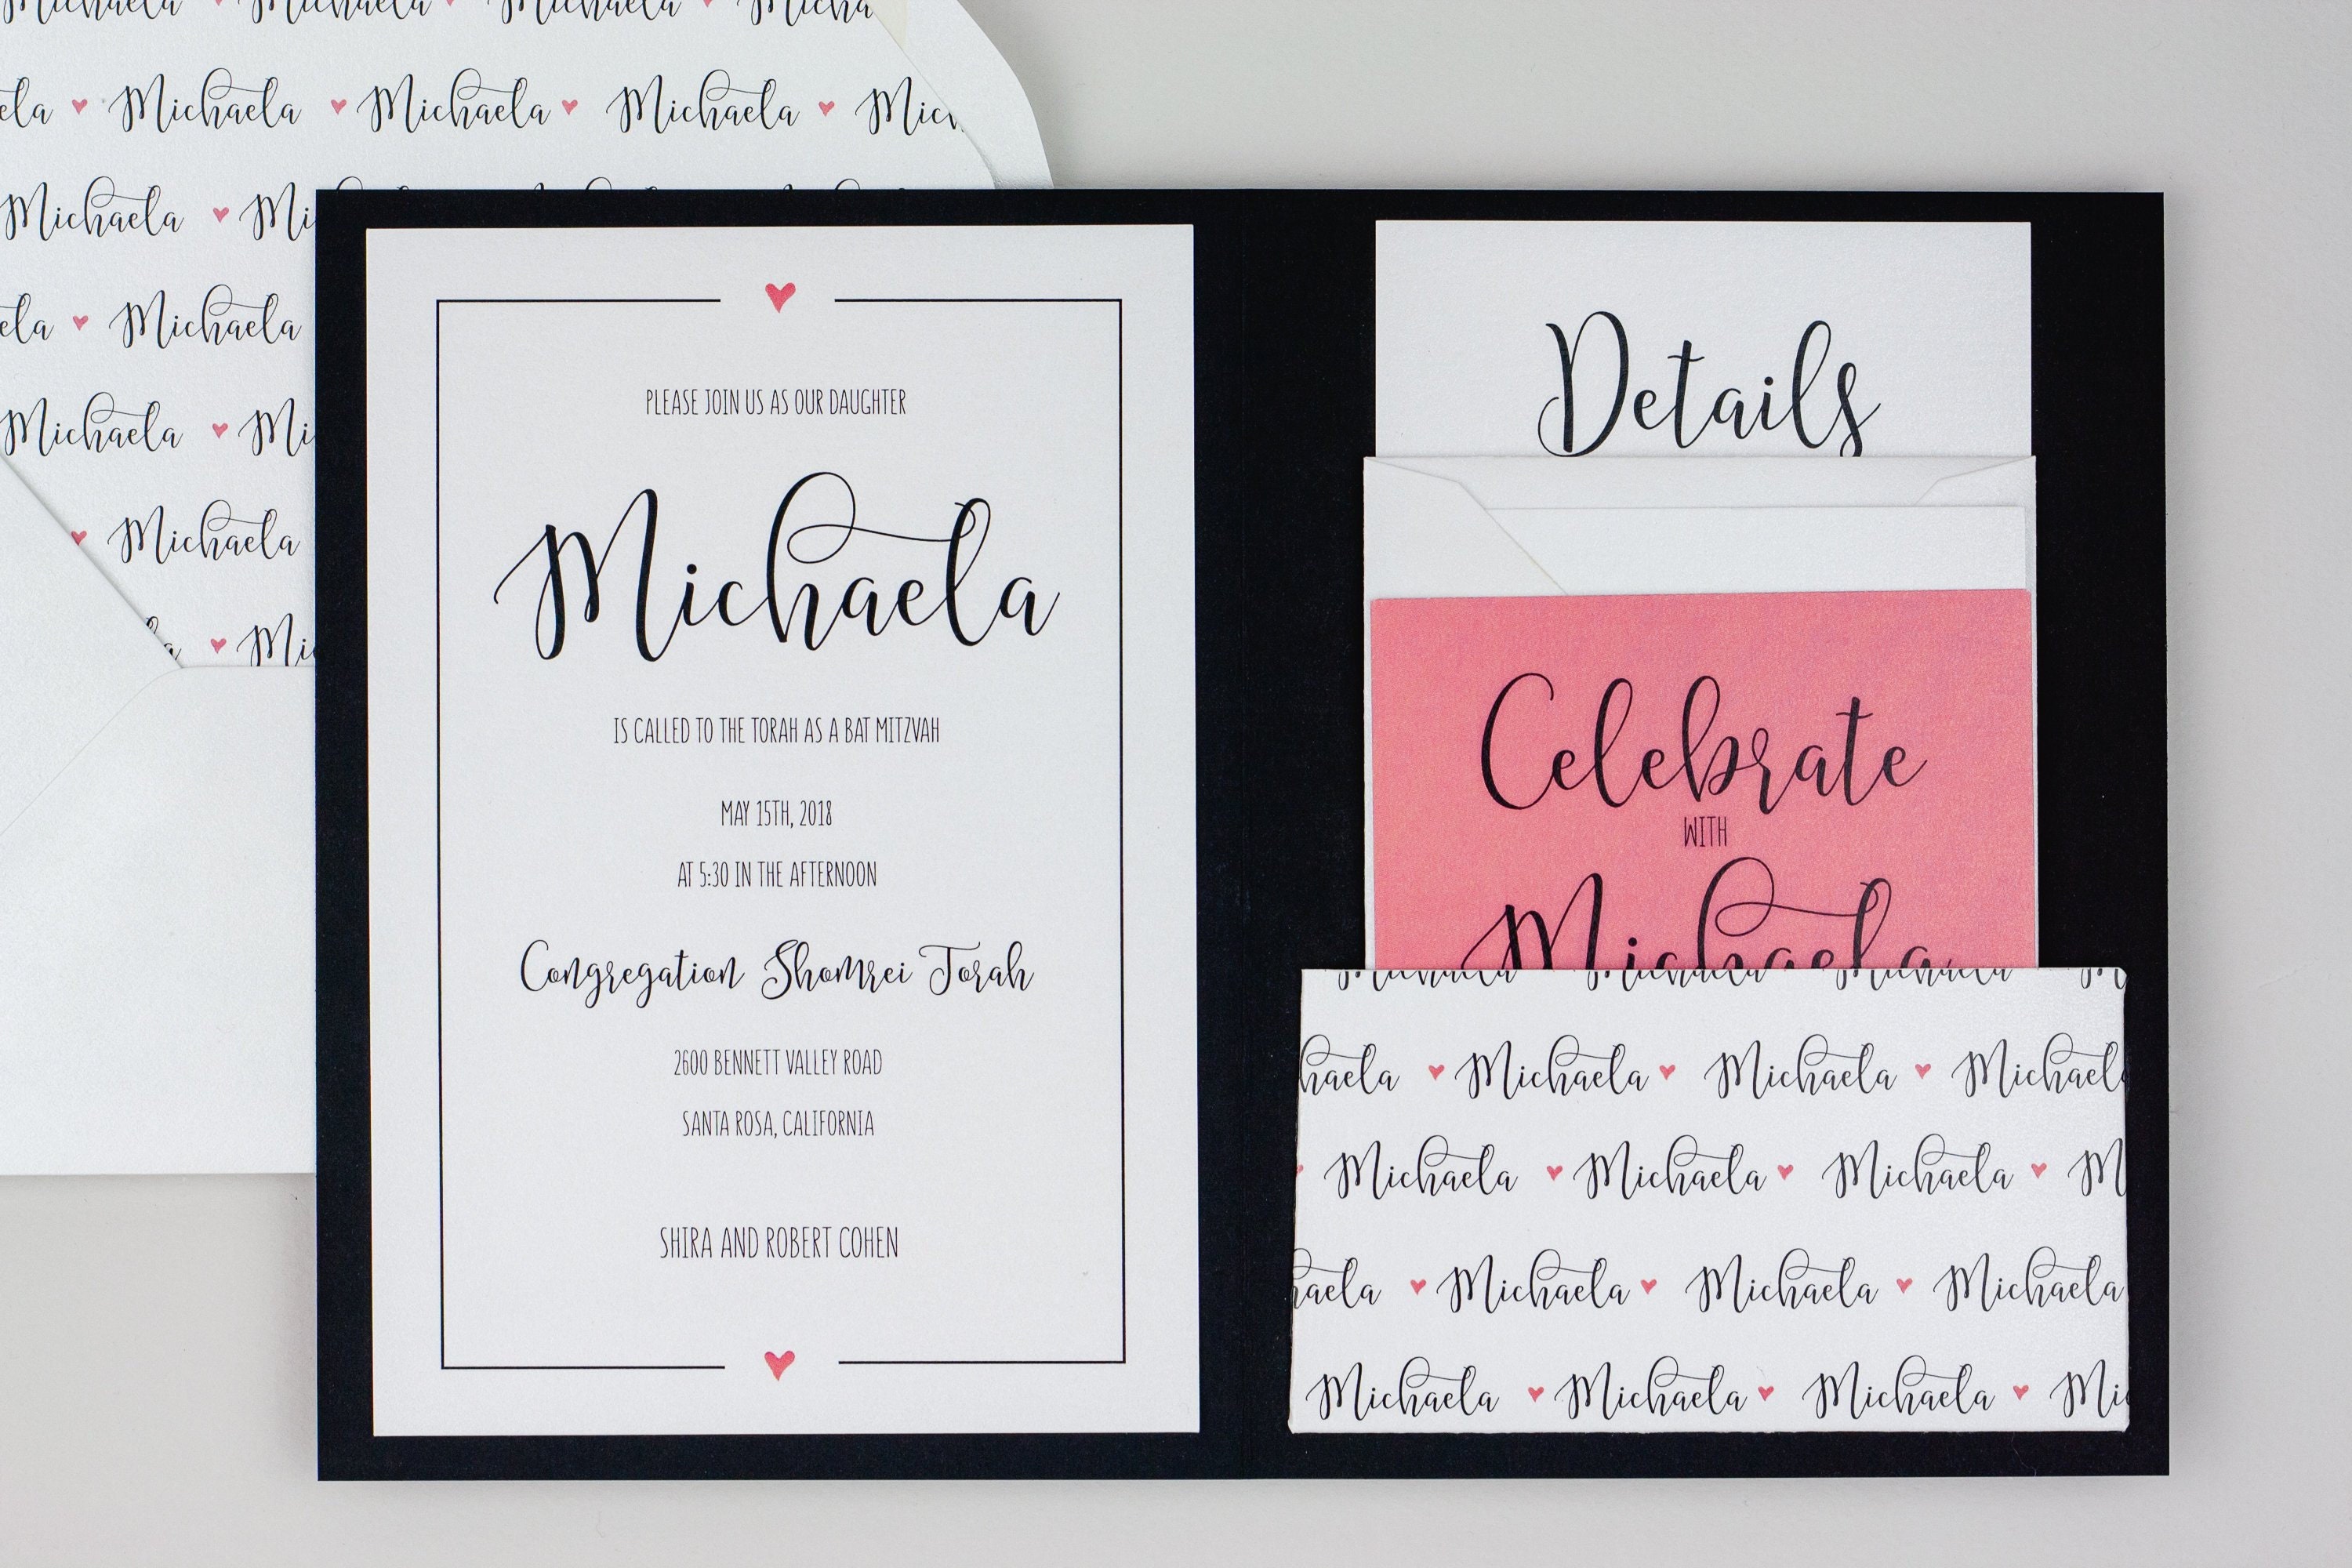 Micha
Michaela Michaela Michaela
Michaela
Michaela
Michaela
Michaela
PLEASE JOIN US AS OUR DAUGHTER
Michaela
IS CALLED TO THE TORAH AS A BAT MITZVAH
MAY 15TH, 2018
AT 5:30 IN THE AFTERNOON
Congregation Shomrei Torah
2600 BENNETT VALLEY ROAD
SANTA ROSA, CALIFORNIA
SHIRA AND ROBERT COHEN
Details
Celebrate
WITH
Michaela
haela Michaela Michaela Michael
Michaela Michaela Michaela M
aela Michaela Michaela Michaela
Michaela Michaela Michaela Mi